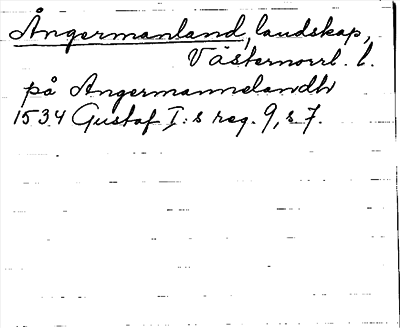 Ångermanland, landskap,
Västernorrl. l.
på Angermannelandh
1534 Gustaf I:s reg. 9, s 7.